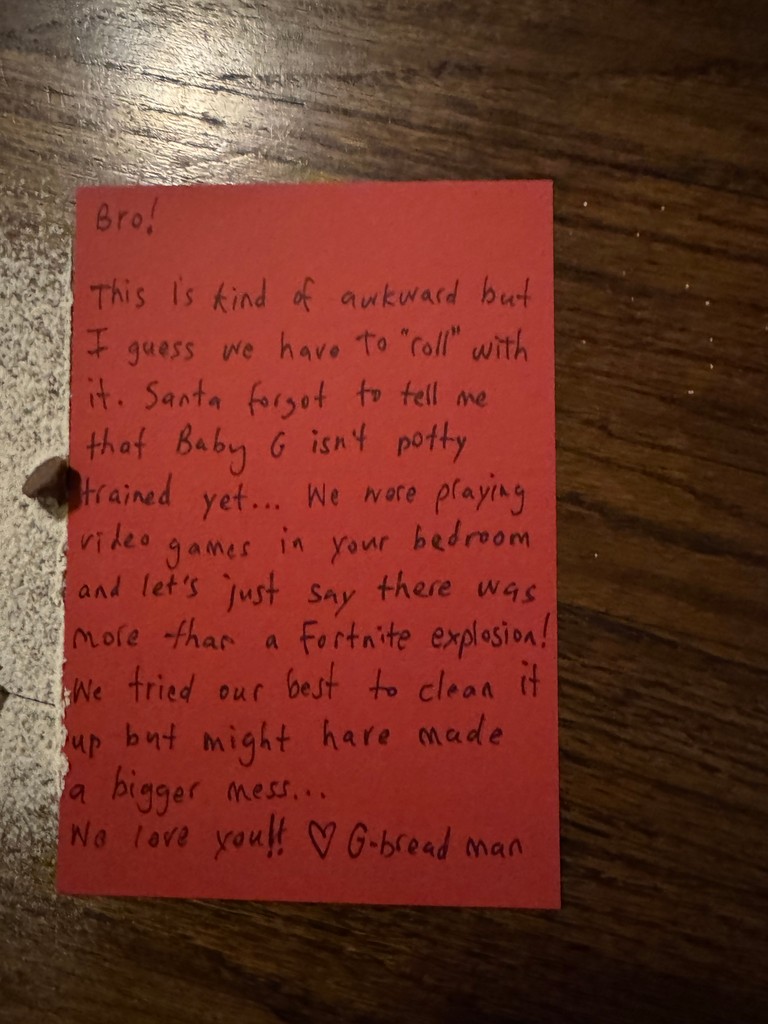 Bro!
This is kind of awkward but
I guess we have to "roll" with
it. Santa forgot to tell me
that Baby G isn't potty
trained yet... We were playing
video games in your bedroom
and let's just say there was
more than a Fortnite explosion!
We tried our best to clean it
up but might have made
a bigger mess...
We love you!! ♡ G-bread man